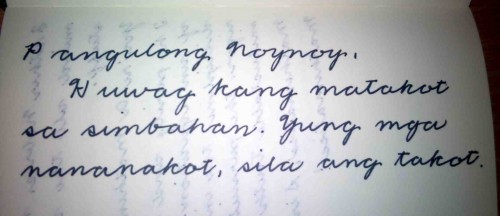 Pangulong Noynoy,
Huwag kang matakot
sa simbahan. Yung mga
nananakot, sila ang takot.